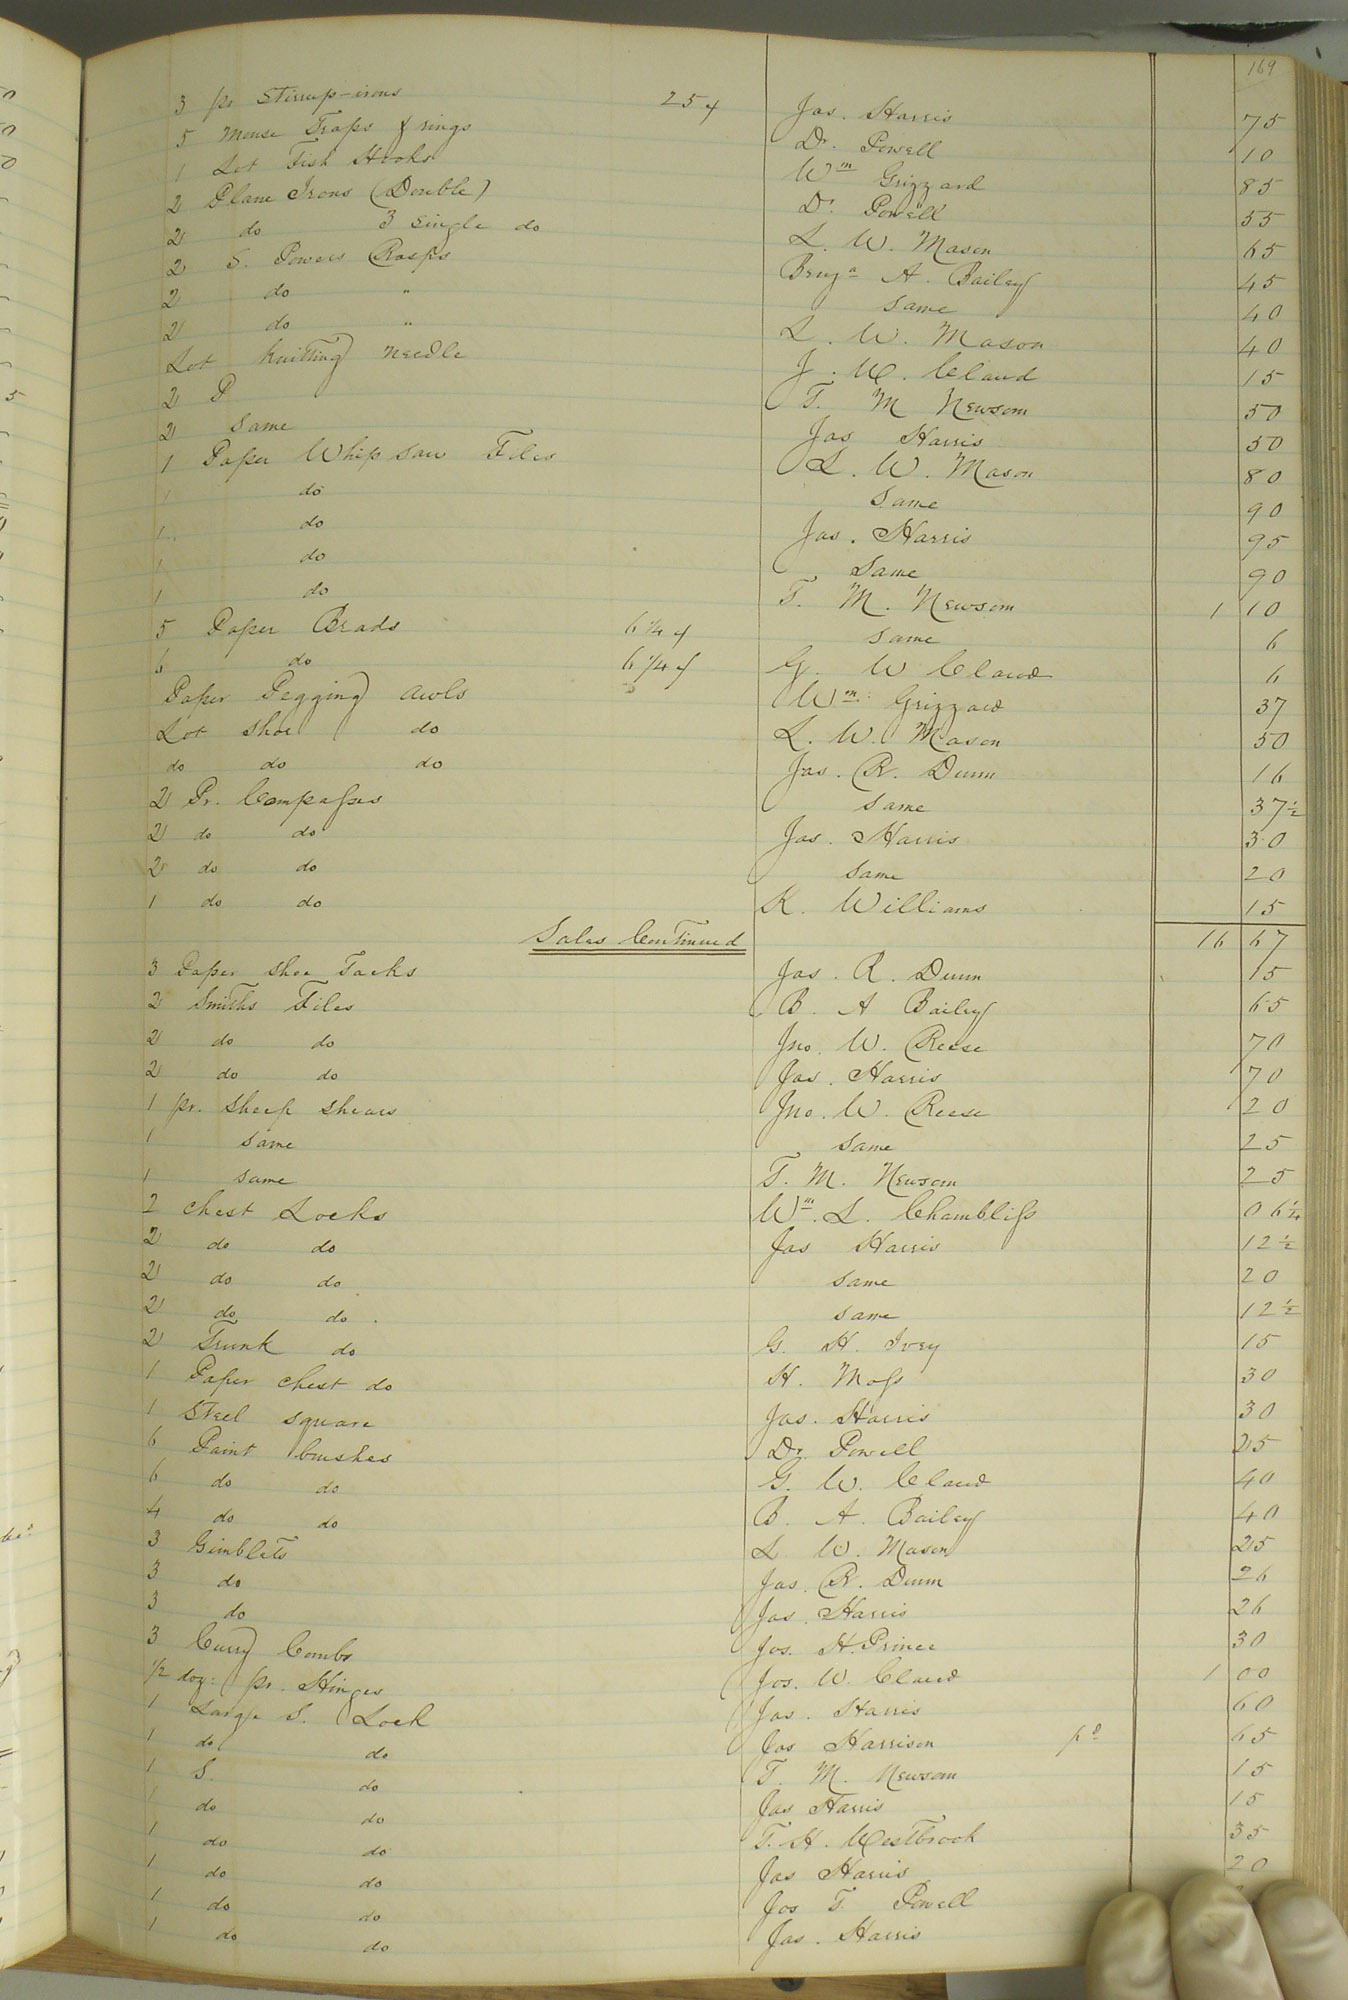 169
3 pr Stirrup-irons 25 ¢ Jas. Harris 75
5 Mouse Traps & rings Dr. Powell 10
1 Lot Fish Hooks Wm Grizzard 85
2 Plane Irons (Double) Dr. Powell 55
2 do 3 single do L. W. Mason 65
2 S. Powers Rasps Benja A. Bailey 45
2 do " Same 40
2 do " L. W. Mason 40
Lot knitting needle J. W. Claud 15
2 P T. M Newsom 50
2 Same Jas Harris 50
1 Paper Whip saw Files L. W. Mason 80
1 do Same 90
1 do Jas. Harris 95
1 do Same 90
1 do T. M. Newsom 1 10
5 Paper Brads 6 1/4 ¢ Same 6
6 do 6 1/4 ¢ G. W Claud 6
Paper Pegging awls Wm. Grizzard 37
Lot shoe do L. W. Mason 50
do do do Jas. R. Dunn 16
2 Pr. Compasses Same 37 1/2
2 do do Jas. Harris 30
2 do do Same 20
1 do do K. Williams 15
Sales Continued 16 67
3 Paper shoe Tacks Jas. R. Dunn 15
2 Smiths Files B. A Bailey 65
2 do do Jno. W. Reese 70
2 do do Jas. Harris 70
1 pr. sheep shears Jno. W. Reese 20
1 same same 25
1 same T. M. Newsom 25
2 chest Locks Wm. L. Chambliss 06 1/4
2 do do Jas Harris 12 1/2
2 do do same 20
2 do do. same 12 1/2
2 Trunk do G. H. Ivey 15
1 Paper chest do H. Moss 30
1 Steel square Jas. Harris 30
6 Paint brushes Dr. Powell 25
6 do do G. W. Claud 40
4 do do B. A. Bailey 40
3 Gimblets L W. Mason 25
3 do Jas. R. Dunn 26
3 do Jas. Harris 26
3 Curry Combs Jos. H. Prince 30
1/2 doz: pr. Hinges Jos. W. Claud 1 00
1 Large S. Lock Jas. Harris 60
1 do do Jas Harrison pd 65
1 S. do T. M. Newsom 15
1 do do Jas Harris 15
1 do do T. H. Westbrook 35
1 do do Jas Harris 20
1 do do Jos T. Powell
1 do do Jas. Harris